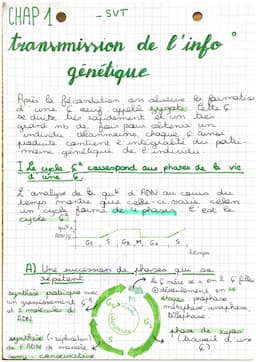 CHAP 1 - SVT
transmission de l'info°
génétique
Après la fécondation on observe la formation
d'une ¢ œuf appelée zygote. Cette ¢
se divise très rapidement et un très
grand nb de fois pour obtenir un
individu. Néanmoins, chaque ¢ ainsi
produite contient l'intégralité du patri-
moine génétique de l'individu.
I Le cycle ¢re correspond aux phases de la vie
d'une ¢
L'analyse de la qut d'ADN au cours du
temps montre que celle-ci varie selon
un cycle formé de 4 phases. C'est le
cycle ¢re
qut
ADN/¢
G1 S G2 M G1 S
temps
A) Une succession de phases qui se
répètent
la ¢ mère se ÷ en 2 ¢ filles
déroulement en 4
étapes prophase
métaphase anaphase
télophase
un grossissement ¢re
et 2 molécules d'
ADN
M
G2
G1
S
phase de repos
(travail d'une
synthèse (= réplication)
de l'ADN de manière
semi conservative